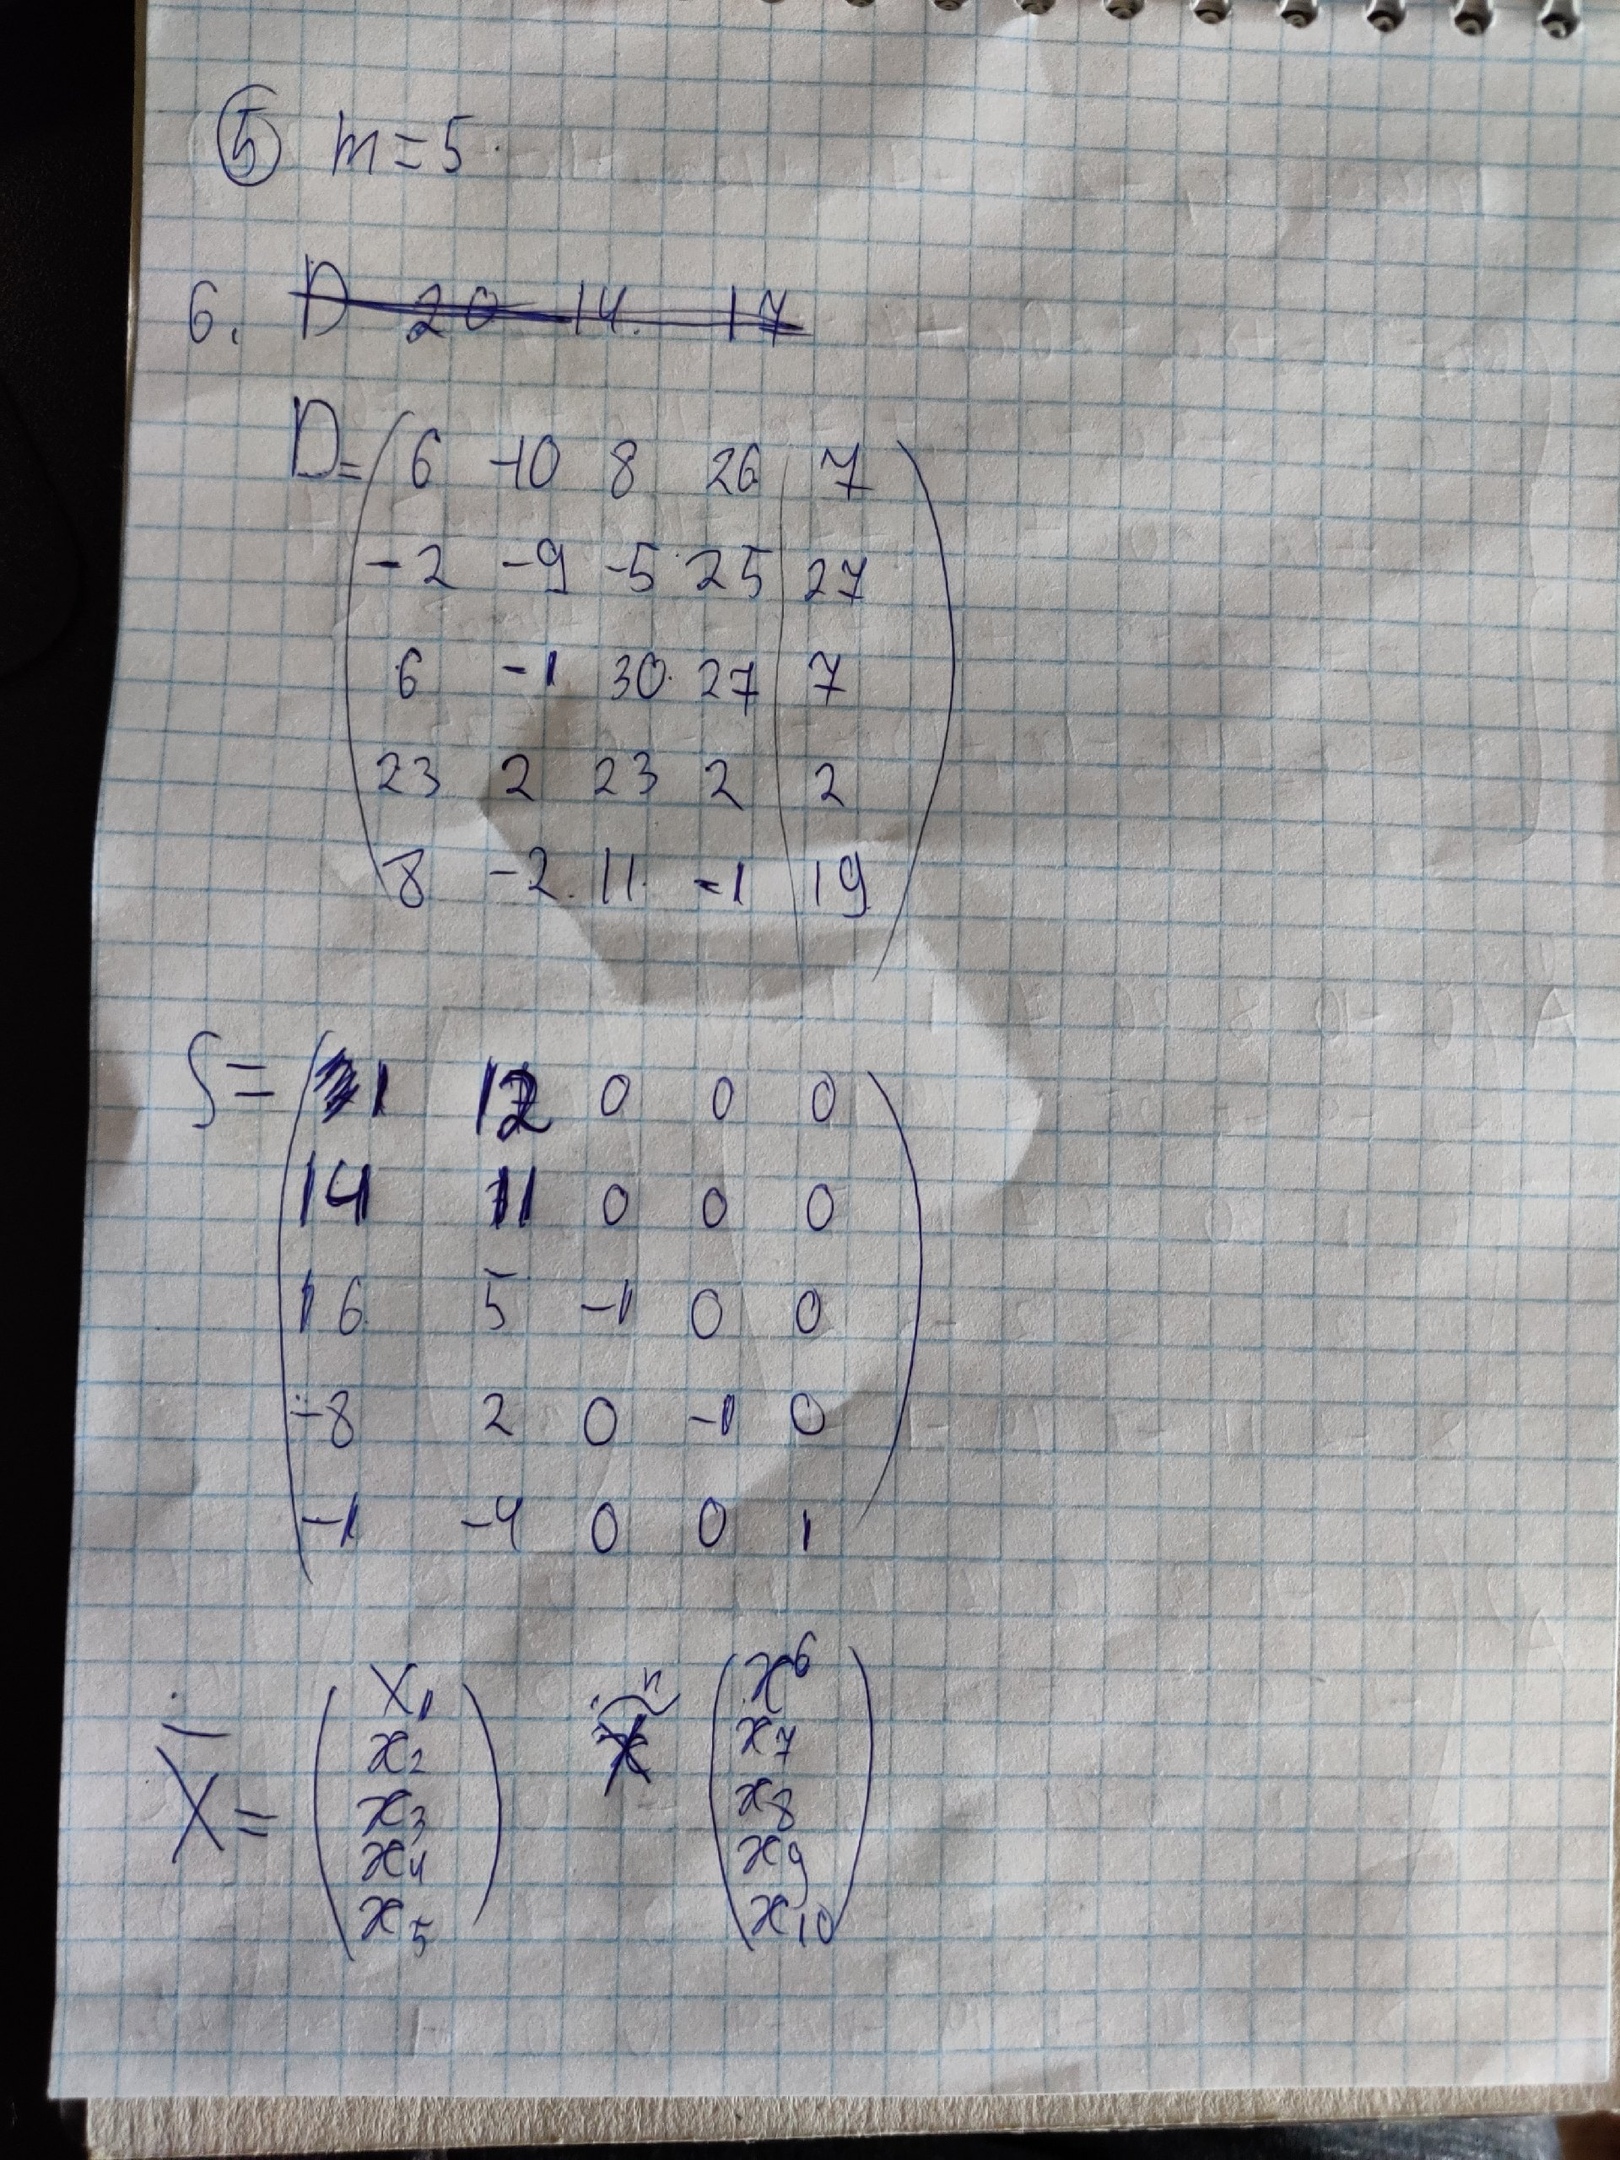 5 m=5.
6. D 20 14. 17
D= 6 -10 8 26 7
-2 -9 -5 25 27
6 -1 30 27 7
23 2 23 2 2
8 -2 11 -1 19
S= 1 12 0 0 0
14 11 0 0 0
16 5 -1 0 0
-8 2 0 -1 0
-1 -4 0 0 1
X̄= x₁ x⁶
x₂ x₇
x₃ x₈
x₄ x₉
x₅ x₁₀